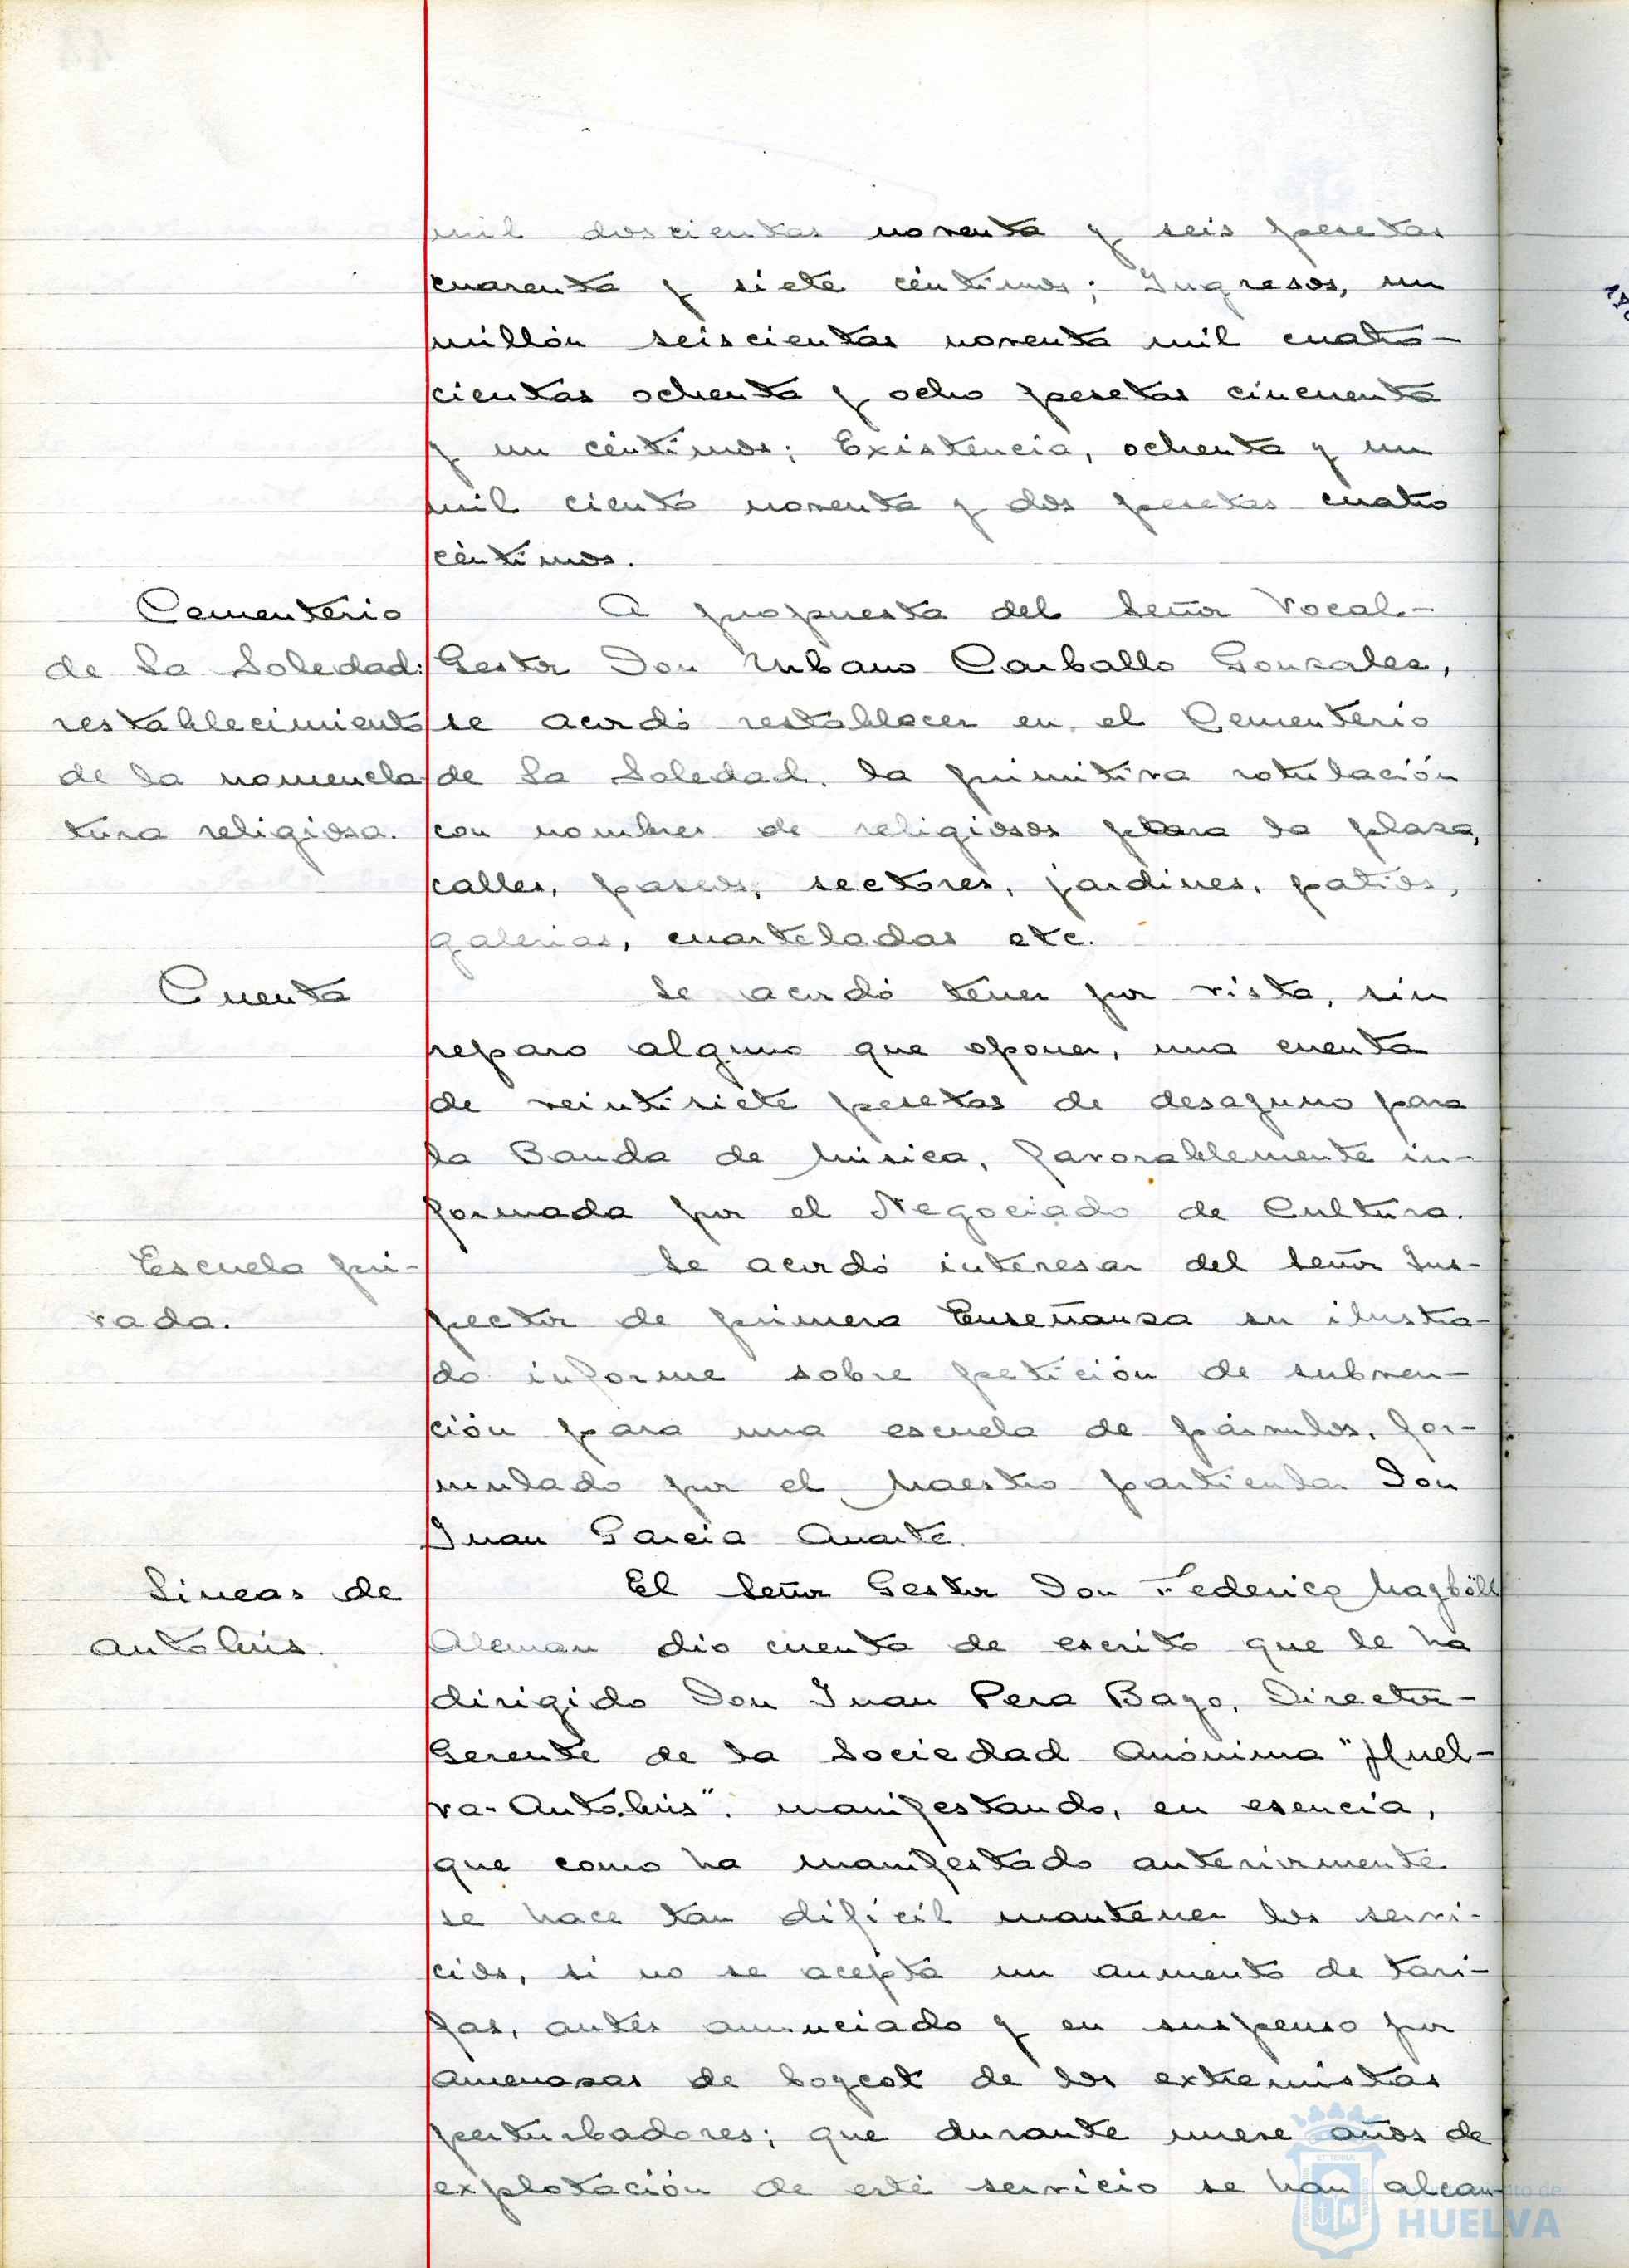 mil doscientas noventa y seis pesetas
cuarenta y siete céntimos; Ingresos, un
millón seiscientas noventa mil cuatro-
cientas ochenta y ocho pesetas cincuenta
y un céntimos; Existencia, ochenta y un
mil ciento noventa y dos pesetas cuatro
céntimos.
Cementerio
de La Soledad:
restablecimiento
de la nomencla
tura religiosa.
A propuesta del Señor Vocal-
Gestor Don Urbano Carballo Gonzalez,
se acordó restablecer en el Cementerio
de La Soledad, la primitiva rotulación
con nombres de religiosos para la plaza,
calles, paseos, sectores, jardines, patios,
galerias, cuarteladas etc.
Cuenta
Se acordó tener por vista, sin
reparo alguno que oponer, una cuenta
de veintisiete pesetas de desayuno para
la Banda de Música, favorablemente in-
formada por el Negociado de Cultura.
Escuela pri-
vada.
Se acordó interesar del Señor Ins-
pector de primera Enseñanza su ilustra-
do informe sobre petición de subven-
ción para una escuela de párvulos, for-
mulado por el Maestro particular Don
Juan Garcia Duarte.
Lineas de
autobús.
El Señor Gestor Don Federico
Aleman dió cuenta de escrito que le ha
dirigido Don Juan Pera Bayo, Director-
Gerente de la Sociedad Anónima "Huel-
va-Autobús", manifestando, en esencia,
que como ha manifestado anteriormente
se hace tan dificil mantener los servi-
cios, si no se acepta un aumento de tari-
fas, antes anunciado y en suspenso por
amenazas de boycot de los extremistas
perturbadores; que durante nueve años de
explotación de este servicio se han alcan-
HUELVA